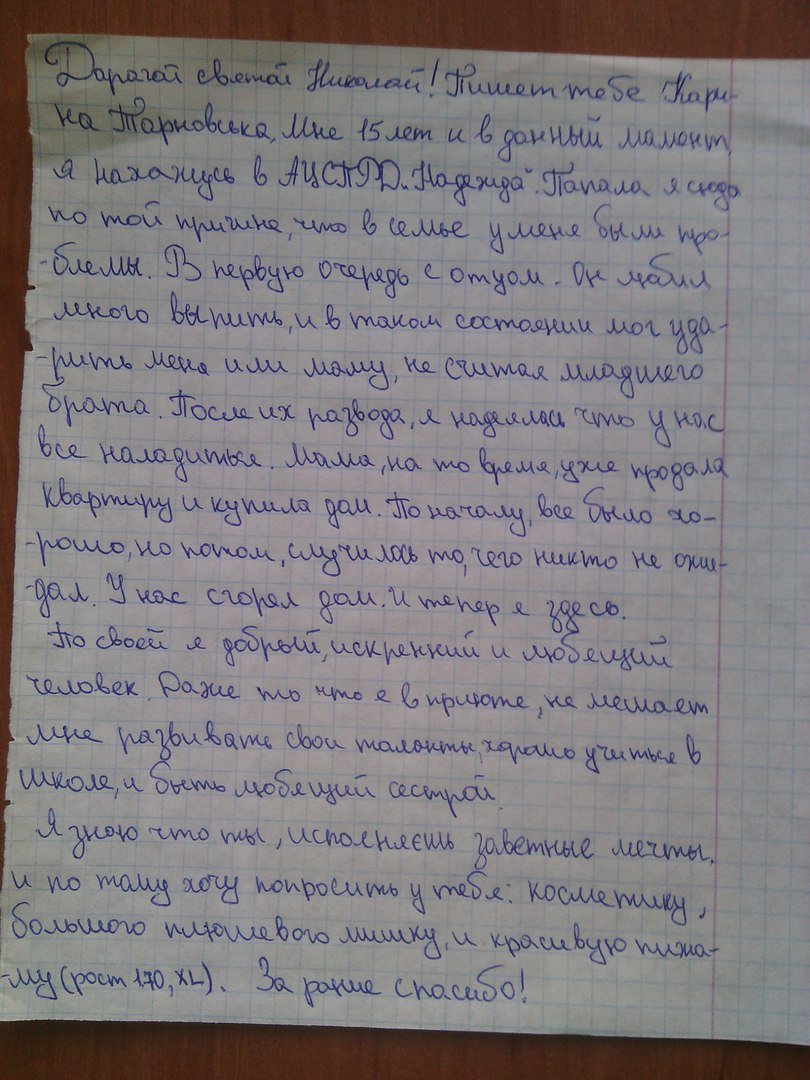 Дарагой святой Николай! Пишет тебе Кари-
на Тарновська, Мне 15 лет и в данный мамонт,
я нахажусь в АЦСПРД „Надежда". Папала я сюда
по той причине, что в семье у меня были про-
-блемы. В первую очередь с отцом. Он любил
много выпить, и в таком состоянии мог уда-
-рить меня или маму, не считая младшего
брата. После их развода, я надеялась что у нас
все наладиться. Мама, на то время, уже продала
квартиру и купила дом. По началу, все было хо-
-рошо, но потом, случилось то, чего никто не ожи-
-дал. У нас сгорел дом. И тепер я здесь.
По своей я добрый, искренний и любящий
человек. Даже то что я в приюте, не мешает
мне развивать свои таланты, хорошо учиться в
школе, и быть любящий сестрой.
Я знаю что ты, исполняєшь заветные мечты.
и по таму хочу попросить у тебя: косметику,
большого плюшевого мишку, и красивую пижа-
-му (рост 170, XL). За ранше спасибо!